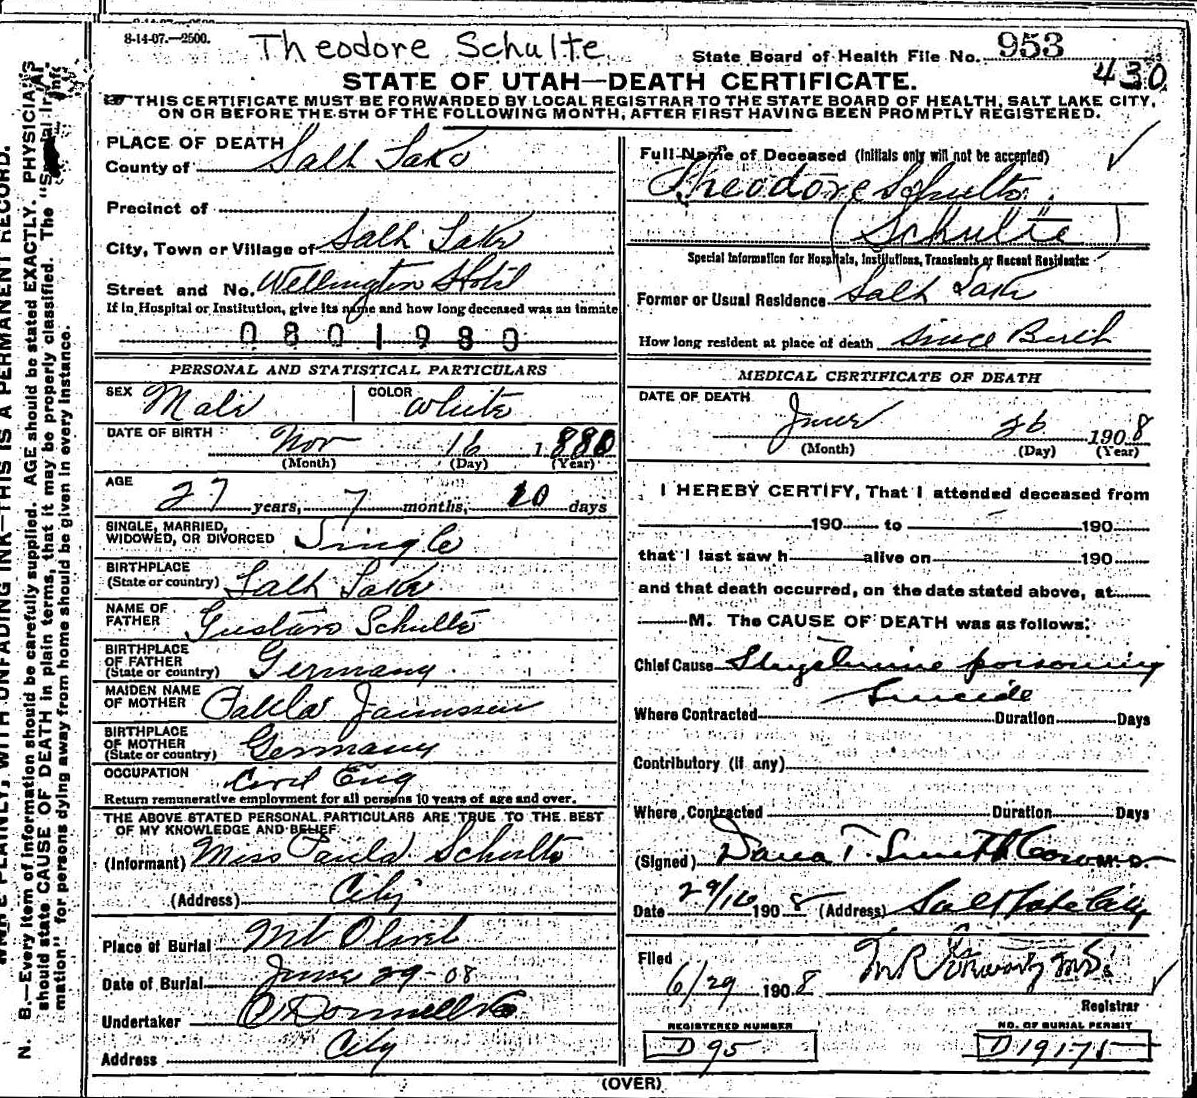 8-14-07.—2500.
Theodore Schulte
State Board of Health File No. 953
430
STATE OF UTAH—DEATH CERTIFICATE.
THIS CERTIFICATE MUST BE FORWARDED BY LOCAL REGISTRAR TO THE STATE BOARD OF HEALTH, SALT LAKE CITY,
ON OR BEFORE THE 5TH OF THE FOLLOWING MONTH, AFTER FIRST HAVING BEEN PROMPTLY REGISTERED.
PLACE OF DEATH
County of Salt Lake
Precinct of
City, Town or Village of Salt Lake
Street and No. Wellington Hotel
If in Hospital or Institution, give its name and how long deceased was an inmate
0801980
PERSONAL AND STATISTICAL PARTICULARS
SEX Male COLOR White
DATE OF BIRTH Nov 16 1880
(Month) (Day) (Year)
AGE
27 years, 7 months, 10 days
SINGLE, MARRIED,
WIDOWED, OR DIVORCED Single
BIRTHPLACE
(State or country) Salt Lake
NAME OF
FATHER Gustave Schulte
BIRTHPLACE
OF FATHER
(State or country) Germany
MAIDEN NAME
OF MOTHER Paula
BIRTHPLACE
OF MOTHER
(State or country) Germany
OCCUPATION Civil Eng
Return remunerative employment for all persons 10 years of age and over.
THE ABOVE STATED PERSONAL PARTICULARS ARE TRUE TO THE BEST
OF MY KNOWLEDGE AND BELIEF
(Informant) Miss Paula Schulte
(Address) City
Place of Burial Mt Olivet
Date of Burial June 29-08
Undertaker O'Donnell & Co
Address City
Full Name of Deceased (Initials only will not be accepted)
Theodore Schulte
(Schulte)
Special Information for Hospitals, Institutions, Transients or Recent Residents:
Former or Usual Residence Salt Lake
How long resident at place of death Since Birth
MEDICAL CERTIFICATE OF DEATH
DATE OF DEATH
June 26 1908
(Month) (Day) (Year)
I HEREBY CERTIFY, That I attended deceased from
190 to 190
that I last saw h alive on 190
and that death occurred, on the date stated above, at
M. The CAUSE OF DEATH was as follows:
Chief Cause poisoning
Suicide
Where Contracted Duration Days
Contributory (if any)
Where Contracted Duration Days
(Signed) Dana T Smith Coroner
Date 29/16 1908 (Address) Salt Lake City
Filed
6/29 1908
Registrar
REGISTERED NUMBER
D 95
NO. OF BURIAL PERMIT
D 19175
(OVER)
N. B.—Every item of information should be carefully supplied. AGE should be stated EXACTLY. PHYSICIANS
should state CAUSE OF DEATH in plain terms, that it may be properly classified. The
mation" for persons dying away from home should be given in every instance.
PLAINLY, WITH UNFADING INK—THIS IS A PERMANENT RECORD.